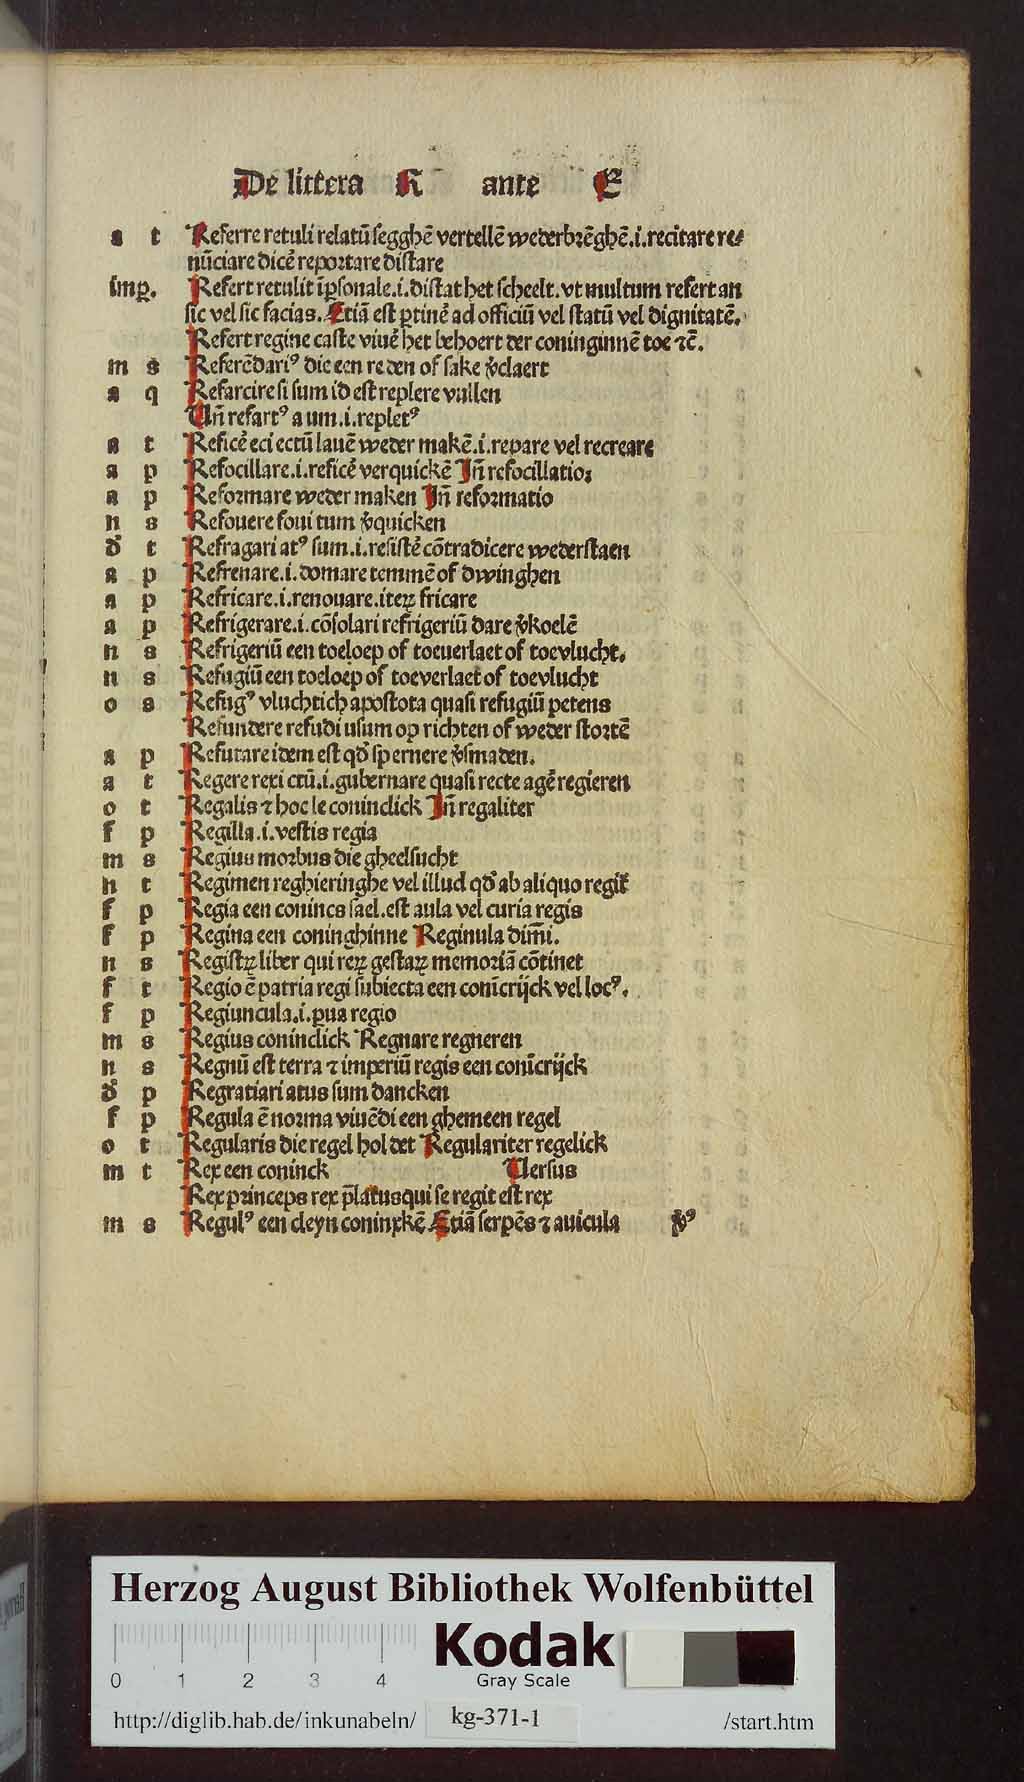 De littera R ante E
a t Referre retuli relatū segghē vertellē wederbrēghē.i.recitare re⸗
nūciare dicē reportare distare
imp. Refert retulit īpsonale.i.distat het scheelt.vt multum refert an
sic vel sic facias.Etiā est ꝑtinē ad officiū vel statū vel dignitatē.
Refert regine caste viuē het behoert der coninginnē toe ⁊c̄.
m s Referēdariꝰ die een reden of sake v̄claert
a q Refarcire si sum id est replere vullen
Un̄ refartꝰ a um.i.repletꝰ
a t Reficē eci ectū lauē weder makē.i.repare vel recreare
a p Refocillare.i.reficē verquickē In̄ refocillatio;
a p Reformare weder maken In̄ reformatio
n s Refouere foui tum v̄quicken
d̄ t Refragari atꝰ sum.i.resistē cōtradicere wederstaen
a p Refrenare.i.domare temmē of dwinghen
a p Refricare.i.renouare.iteꝝ fricare
a p Refrigerare.i.cōsolari refrigeriū dare v̄koelē
n s Refrigeriū een toeloep of toeuerlaet of toevlucht.
n s Refugiū een toeloep of toeverlaet of toevlucht
o s Refugꝰ vluchtich apostota quasi refugiū petens
Refundere refudi usum op richten of weder stortē
a p Refutare idem est qd̄ spernere v̄smaden.
a t Regere rexi ctū.i.gubernare quasi recte agē regieren
o t Regalis ⁊ hoc le coninclick In̄ regaliter
f p Regilla.i.vestis regia
m s Regius morbus die gheelsucht
n t Regimen reghieringhe vel illud qd̄ ab aliquo regit̄
f p Regia een conincs sael.est aula vel curia regis
f p Regina een coninghinne Reginula dim̄i.
n s Registꝝ liber qui reꝝ gestaꝝ memoriā cōtinet
f t Regio ē patria regi subiecta een conīcrijck vel locꝰ.
f p Regiuncula.i.ꝑua regio
m s Regius coninclick Regnare regneren
n s Regnū est terra ⁊ imperiū regis een conīcrijck
d̄ p Regratiari atus sum dancken
f p Regula ē norma viuēdi een ghemeen regel
o t Regularis die regel holdet Regulariter regelick
m t Rex een coninck Uersus
Rex princeps rex p̄latus qui se regit est rex
m s Regulꝰ een cleyn coninxkē Etiā serpēs ⁊ auicula v̄ꝰ
Herzog August Bibliothek Wolfenbüttel
0 1 2 3 4
Kodak
Gray Scale
http://diglib.hab.de/inkunabeln/ kg-371-1 /start.htm